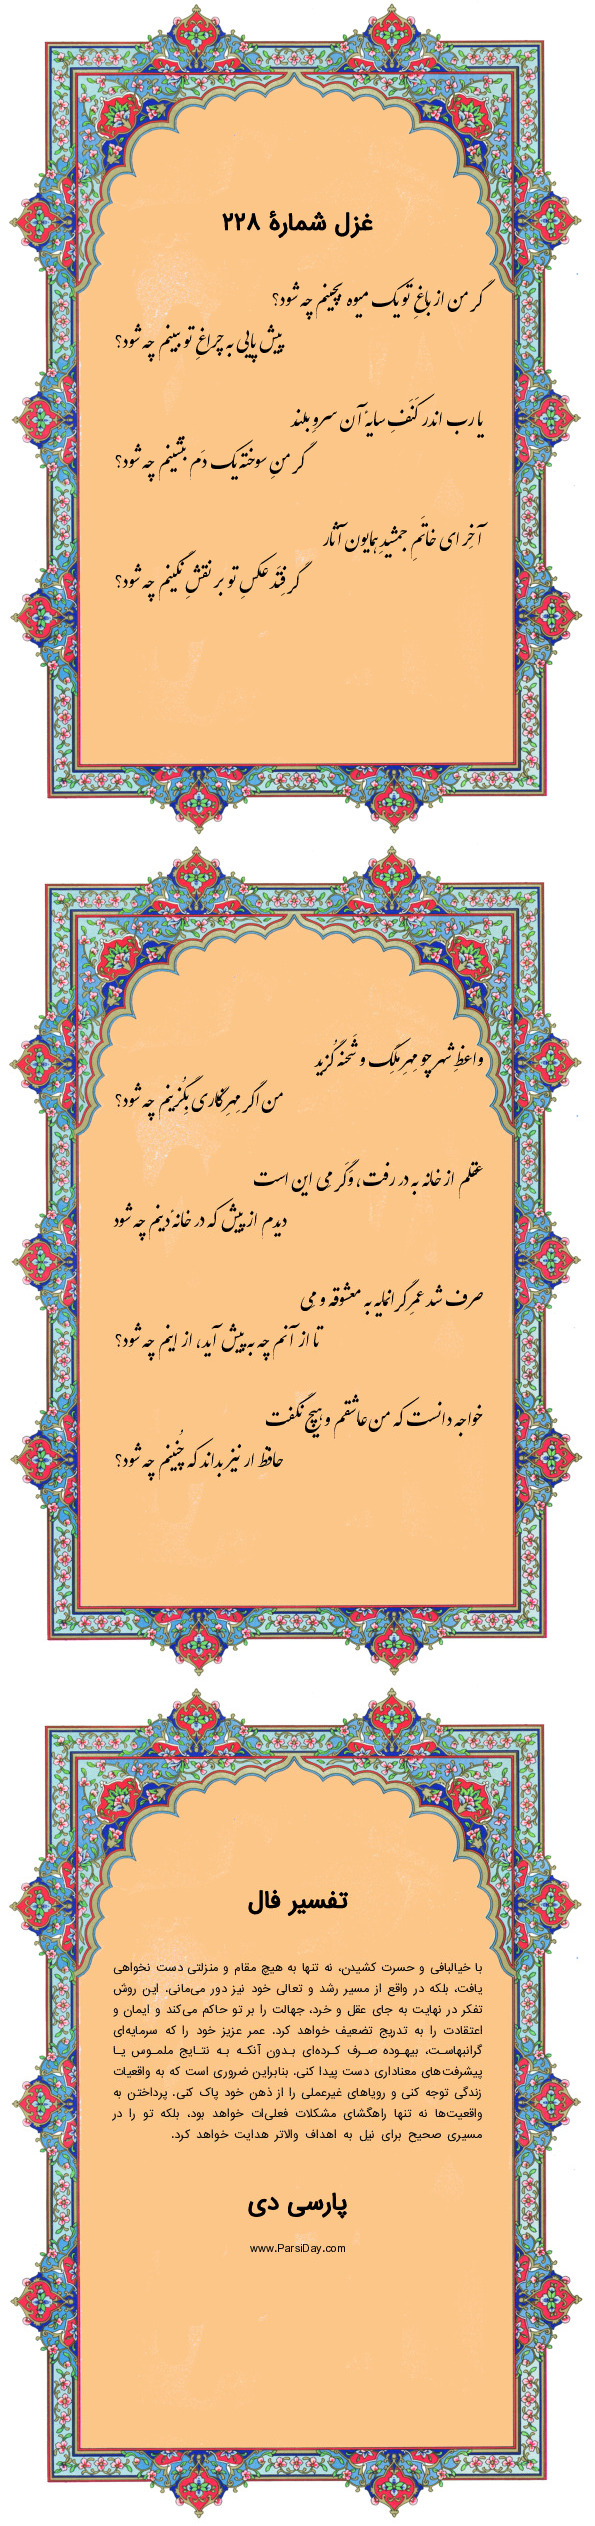 غزل شمارهٔ ۲۲۸
گر من از باغِ تو یک میوه بچینم چه شود؟
پیش پایی به چراغِ تو ببینم چه شود؟
یا رب اندر کَنَفِ سایهٔ آن سروِ بلند
گر منِ سوخته یک دَم بنشینم چه شود؟
آخر ای خاتَمِ جمشیدِ همایون آثار
گر فِتَد عکسِ تو بر نقشِ نگینم چه شود؟
واعظِ شهر چو مِهرِ مَلِک و شَحنه گُزید
من اگر مِهرِ نگاری بِگُزینم چه شود؟
عقلم از خانه به در رفت، وَگَر مِی این است
دیدم از پیش که در خانهٔ دینم چه شود
صرف شد عمرِ گرانمایه به معشوقه و مِی
تا از آنم چه به پیش آید، از اینم چه شود؟
خواجه دانست که من عاشقم و هیچ نگفت
حافظ ار نیز بداند که چُنینم چه شود؟
تفسیر فال
با خیالبافی و حسرت کشیدن، نه تنها به هیچ مقام و منزلتی دست نخواهی
یافت، بلکه در واقع از مسیر رشد و تعالی خود نیز دور می‌مانی. این روش
تفکر در نهایت به جای عقل و خرد، جهالت را بر تو حاکم می‌کند و ایمان و
اعتقادت را به تدریج تضعیف خواهد کرد. عمر عزیز خود را که سرمایه‌ای
گرانبهاست، بیهوده صرف کرده‌ای بدون آنکه به نتایج ملموس یا
پیشرفت‌های معناداری دست پیدا کنی. بنابراین ضروری است که به واقعیات
زندگی توجه کنی و رویاهای غیرعملی را از ذهن خود پاک کنی. پرداختن به
واقعیت‌ها نه تنها راهگشای مشکلات فعلی‌ات خواهد بود، بلکه تو را در
مسیری صحیح برای نیل به اهداف والاتر هدایت خواهد کرد.
پارسی دی
www.ParsiDay.com